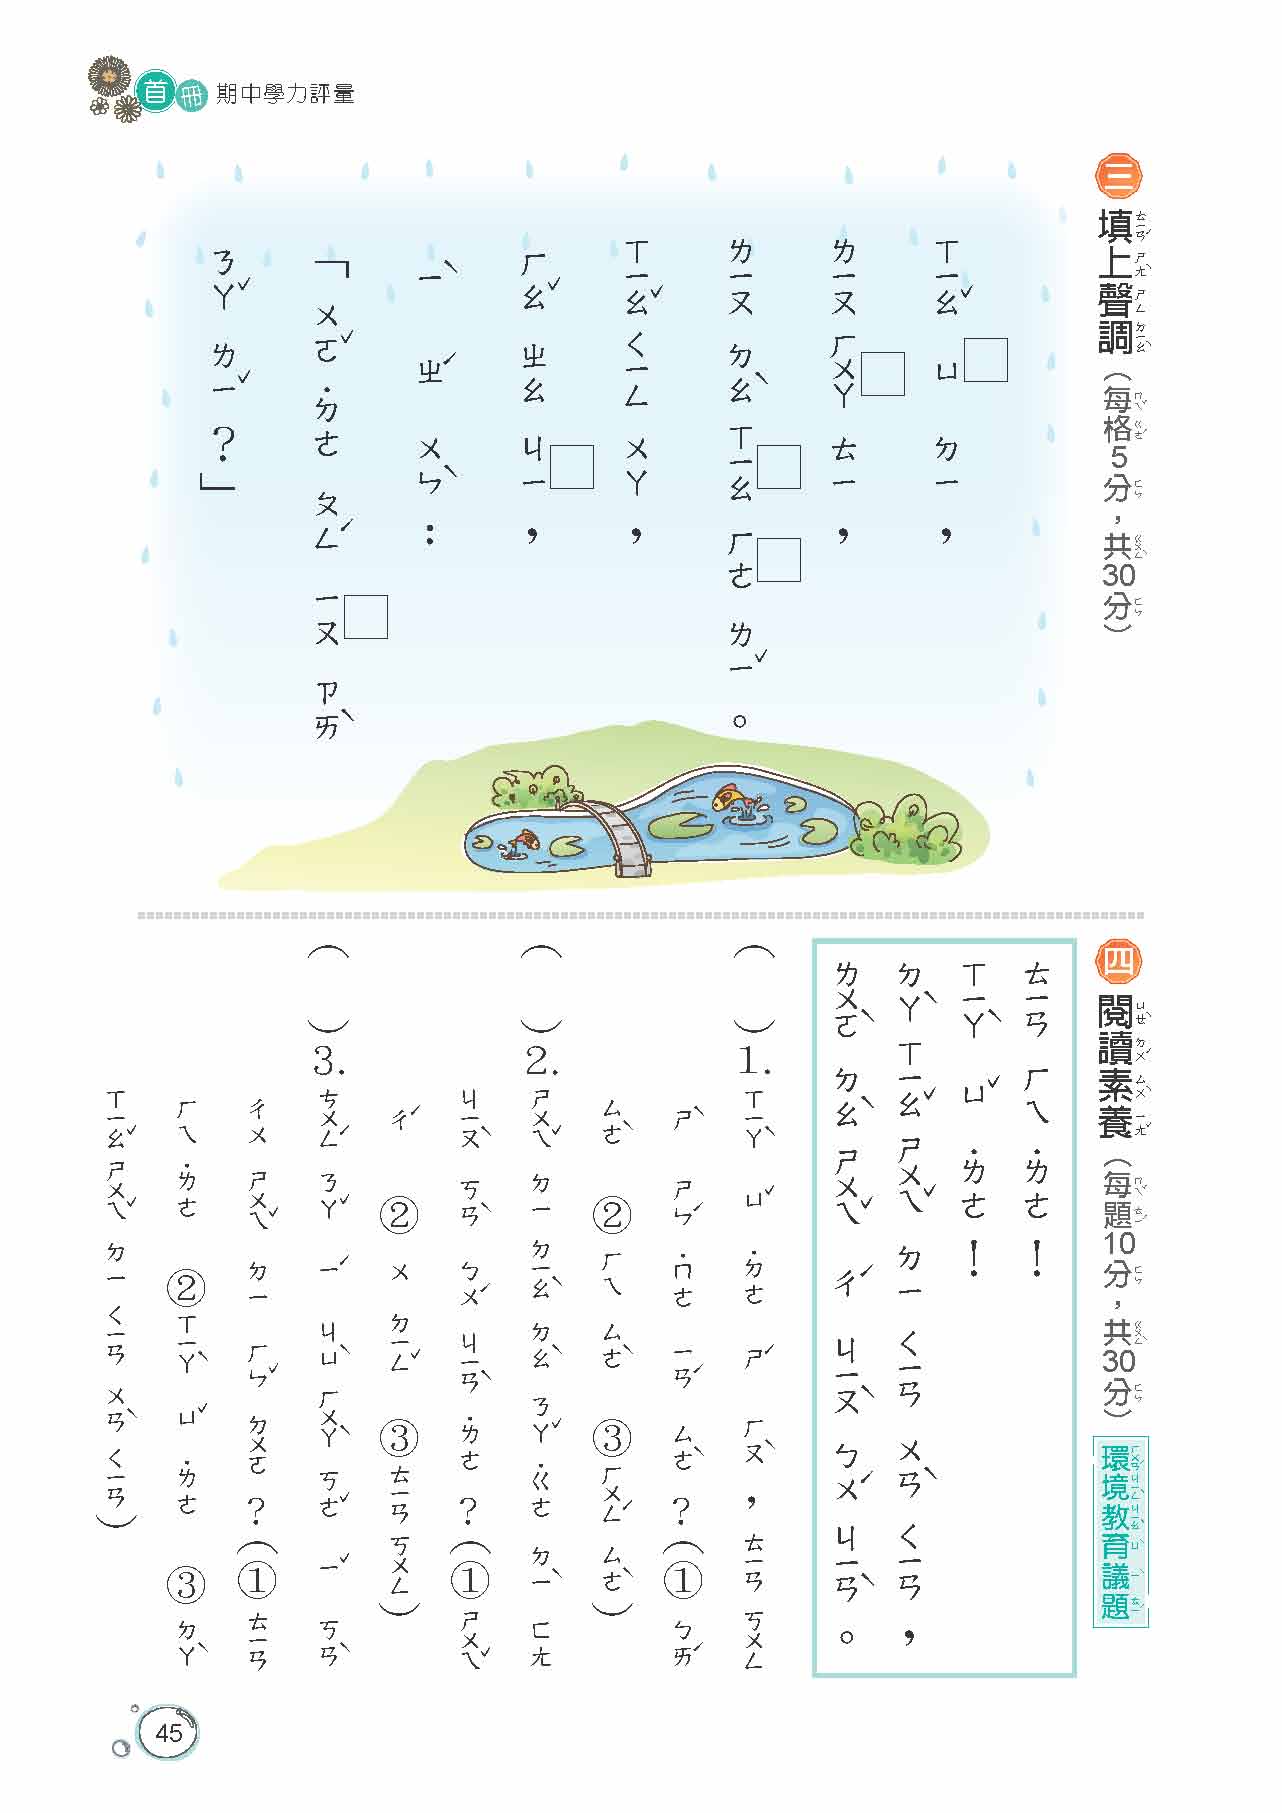 首冊 期中學力評量
三 填上聲調（每格5分，共30分）
ㄒㄧㄠˇ ㄩ□ ㄉㄧ，
ㄌㄧㄡ ㄏㄨㄚ□ ㄊㄧ，
ㄌㄧㄡ ㄉㄠˋ ㄒㄧㄠ□ ㄏㄜ□ ㄌㄧˇ。
ㄒㄧㄠˇ ㄑㄧㄥ ㄨㄚ，
ㄏㄠˇ ㄓㄠ ㄐㄧ□，
ㄧˋ ㄓˊ ㄨㄣˋ：
「ㄨㄛˇ ˙ㄉㄜ ㄆㄥˊ ㄧㄡ□ ㄗㄞˋ
ㄋㄚˇ ㄌㄧˇ？」
四 閱讀素養（每題10分，共30分）環境教育議題
ㄊㄧㄢ ㄏㄟ ˙ㄌㄜ！
ㄒㄧㄚˋ ㄩˇ ˙ㄌㄜ！
ㄉㄚˋ ㄒㄧㄠˇ ㄕㄨㄟˇ ㄉㄧ ㄑㄧㄢ ㄨㄢˋ ㄑㄧㄢ，
ㄌㄨㄛˋ ㄉㄠˋ ㄕㄨㄟˇ ㄔˊ ㄐㄧㄡˋ ㄅㄨˊ ㄐㄧㄢˋ。
（ ）1. ㄒㄧㄚˋ ㄩˇ ˙ㄉㄜ ㄕˊ ㄏㄡˋ，ㄊㄧㄢ ㄎㄨㄥ
ㄕˋ ㄕㄣˊ ˙ㄇㄜ ㄧㄢˊ ㄙㄜˋ？（①ㄅㄞˊ
ㄙㄜˋ ②ㄏㄟ ㄙㄜˋ ③ㄏㄨㄥˊ ㄙㄜˋ）
（ ）2. ㄕㄨㄟˇ ㄉㄧ ㄉㄧㄠˋ ㄉㄠˋ ㄋㄚˇ ˙ㄍㄜ ㄉㄧˋ ㄈㄤ
ㄐㄧㄡˋ ㄎㄢˋ ㄅㄨˊ ㄐㄧㄢˋ ˙ㄌㄜ？（①ㄕㄨㄟˇ
ㄔˊ ②ㄨ ㄉㄧㄥˇ ③ㄊㄧㄢ ㄎㄨㄥ）
（ ）3. ㄘㄨㄥˊ ㄋㄚˇ ㄧˊ ㄐㄩˋ ㄏㄨㄚˋ ㄎㄜˇ ㄧˇ ㄎㄢˋ
ㄔㄨ ㄕㄨㄟˇ ㄉㄧ ㄏㄣˇ ㄉㄨㄛ？（①ㄊㄧㄢ
ㄏㄟ ˙ㄌㄜ ②ㄒㄧㄚˋ ㄩˇ ˙ㄌㄜ ③ㄉㄚˋ
ㄒㄧㄠˇ ㄕㄨㄟˇ ㄉㄧ ㄑㄧㄢ ㄨㄢˋ ㄑㄧㄢ）
45